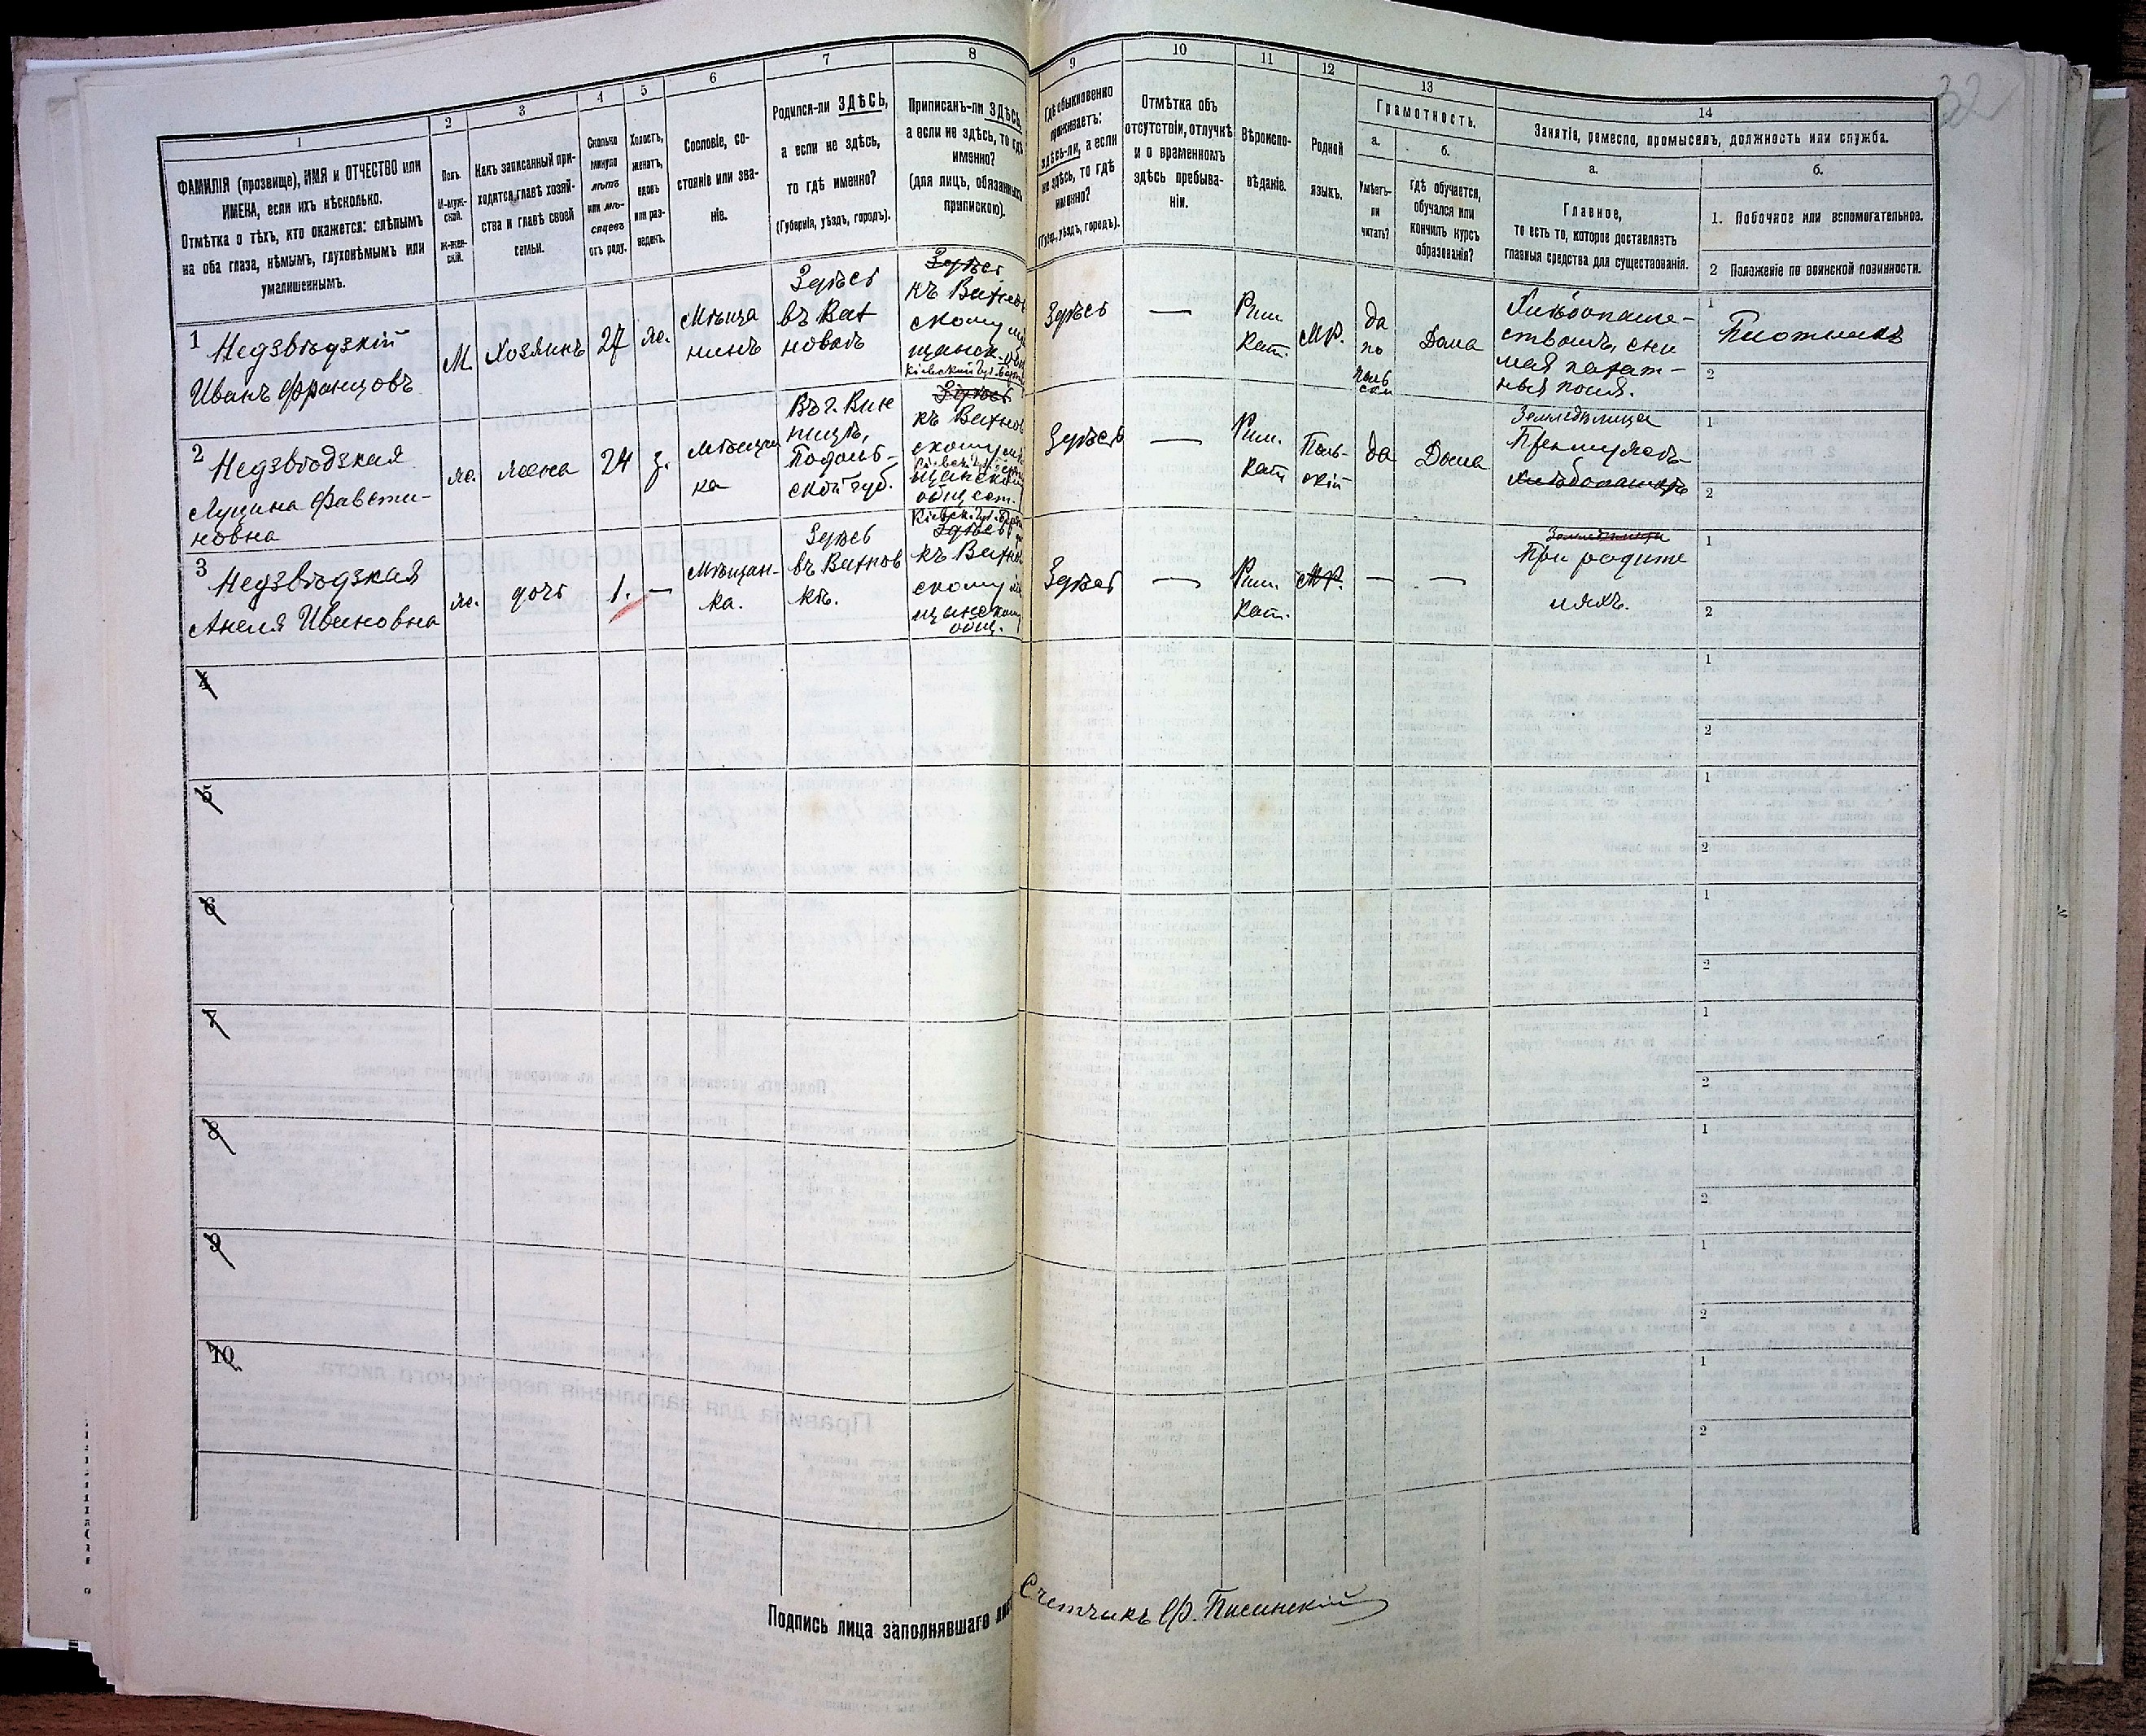 32
1
ФАМИЛІЯ (прозвище), ИМЯ и ОТЧЕСТВО или
ИМЕНА, если ихъ нѣсколько.
Отмѣтка о тѣхъ, кто окажется: слѣпымъ
на оба глаза, нѣмымъ, глухонѣмымъ или
умалишеннымъ.
2
Полъ.
М-муж-
ской.
ж-жен-
скій.
3
Какъ записанный при-
ходится главѣ хозяй-
ства и главѣ своей
семьи.
4
Сколько
минуло
лѣтъ
или мѣ-
сяцевъ
отъ роду.
5
Холостъ,
женатъ,
вдовъ
или раз-
веденъ.
6
Сословіе, со-
стояніе или зва-
ніе.
7
Родился-ли ЗДѢСЬ,
а если не здѣсь,
то гдѣ именно?
(Губернія, уѣздъ, городъ).
8
Приписанъ-ли ЗДѢСЬ,
а если не здѣсь, то гдѣ
именно?
(для лицъ, обязанныхъ
припискою).
9
Гдѣ обыкновенно
проживаетъ:
здѣсь-ли, а если
не здѣсь, то гдѣ
именно?
(Губ., уѣздъ, городъ).
10
Отмѣтка объ
отсутствіи, отлучкѣ
и о временномъ
здѣсь пребыва-
ніи.
11
Вѣроиспо-
вѣданіе.
12
Родной
языкъ.
13
Грамотность.
а.
Умѣетъ-
ли
читать?
б.
гдѣ обучается,
обучался или
кончилъ курсъ
образованія?
14
Занятія, ремесло, промыселъ, должность или служба.
а.
Главное,
то есть то, которое доставляетъ
главныя средства для существованія.
б.
1. Побочное или вспомогательное.
2 Положеніе по воинской повинности.
1
Недзвѣдзкій
Иванъ Францовъ
М.
Хозяинъ
27
ж.
Мѣща
нинъ
Здѣсь
въ Вах
новкѣ
Здѣсь
къ Вахнов
скому мѣ
щанск. общ
Здѣсь
—
Рим.
Кат.
МР.
да
по
поль
ски
Дома
Хлѣбопаше-
ствомъ, сни
мая пахат-
ныя поля.
1
Плотникъ
2
2
Недзвѣдзкая
Луцина Фавсти-
новна
ж.
жена
24
з.
мѣщан
ка
Въ г. Вин
ницѣ,
Подоль-
ской губ.
Здѣсь
къ Вахнов
скому мѣ
щанском
общест.
Здѣсь
—
Рим.
кат.
Поль-
скій
да
Дома
Земледѣлица
При мужѣ
1
2
3
Недзвѣдзкая
Анеля Ивановна
ж.
дочь
1.
—
Мѣщан-
ка.
Здѣсь
въ Вахнов
кѣ.
Здѣсь
къ Вахнов
скому мѣ
щанскому
общ.
Здѣсь
—
Рим.
Кат.
МР.
—
—
При родите
ляхъ.
1
2
4
1
2
5
1
2
6
1
2
7
1
2
8
1
2
9
1
2
10
1
2
Подпись лица заполнявшаго
Счетчикъ Ф.